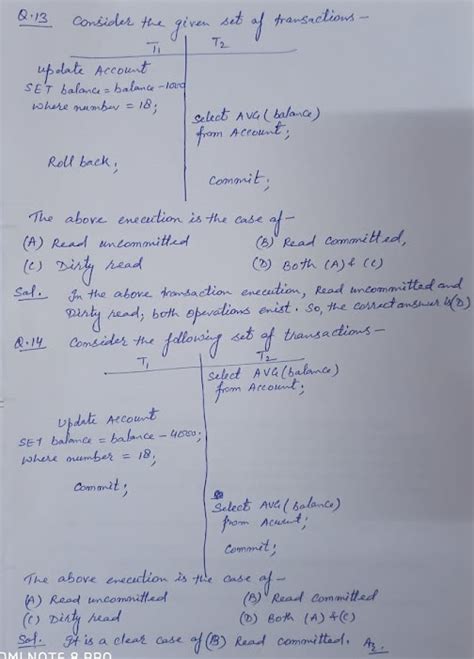 Q.13 Consider the given set of transactions -
T1 T2
update Account
SET balance = balance - 1000
where number = 18;
Select AVG (balance)
from Account;
Roll back;
Commit;
The above execution is the case of -
(A) Read uncommitted (B) Read committed,
(C) Dirty read (D) Both (A) & (C)
Sol. In the above transaction execution, Read uncommitted and
Dirty read, both operations exist. So, the correct answer is (D)
Q.14 Consider the following set of transactions -
T1 T2
Select AVG (balance)
from Account;
update Account
SET balance = balance - 4000;
where number = 18;
Commit;
Select AVG (balance)
from Account;
Commit;
The above execution is the case of -
(A) Read uncommitted (B) Read committed
(C) Dirty read (D) Both (A) & (C)
Sol. It is a clear case of (B) Read committed. Ag.
DMI NOTE 8 PRO